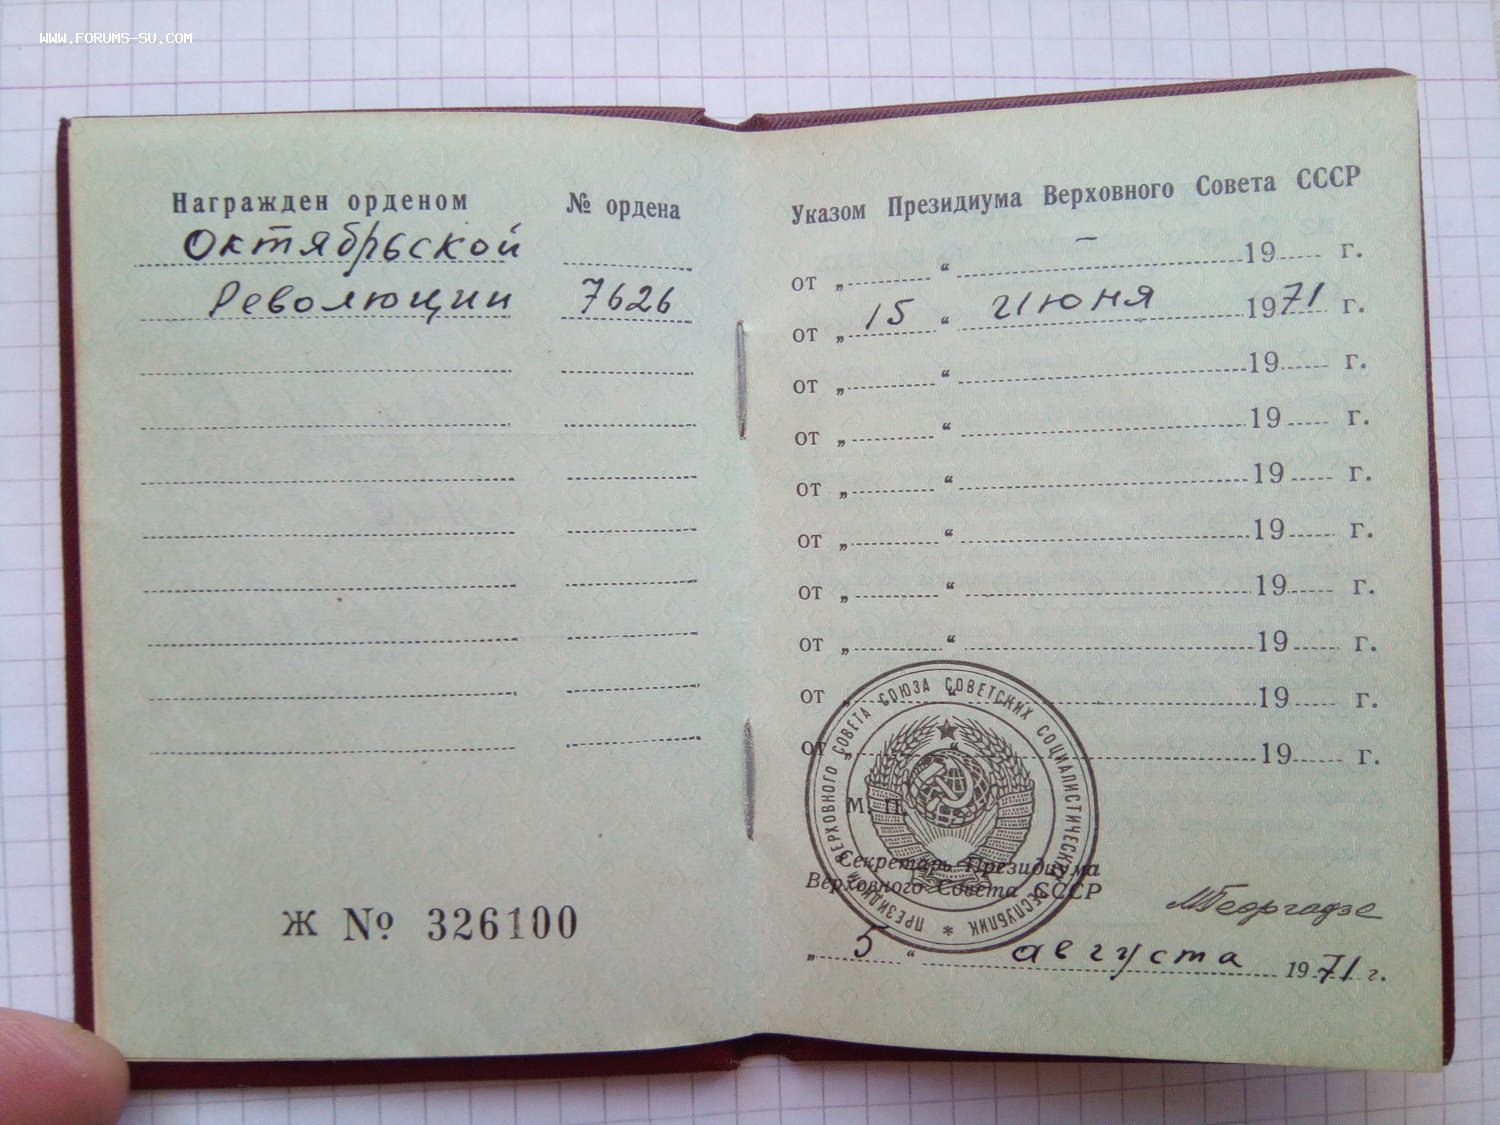 WWW.FORUMS-SU.COM
Награжден орденом № ордена
Октябрьской
Революции 7626
Ж № 326100
Указом Президиума Верховного Совета СССР
от „ “ – 19 г.
от „ 15 “ Июня 1971 г.
от „ “ 19 г.
от „ “ 19 г.
от „ “ 19 г.
от „ “ 19 г.
от „ “ 19 г.
от „ “ 19 г.
от „ “ 19 г.
от „ “ 19 г.
ПРЕЗИДИУМ ВЕРХОВНОГО СОВЕТА СОЮЗА СОВЕТСКИХ СОЦИАЛИСТИЧЕСКИХ РЕСПУБЛИК *
М. П.
Секретарь Президиума
Верховного Совета СССР
МГеоргадзе
„ 5 “ августа 1971 г.